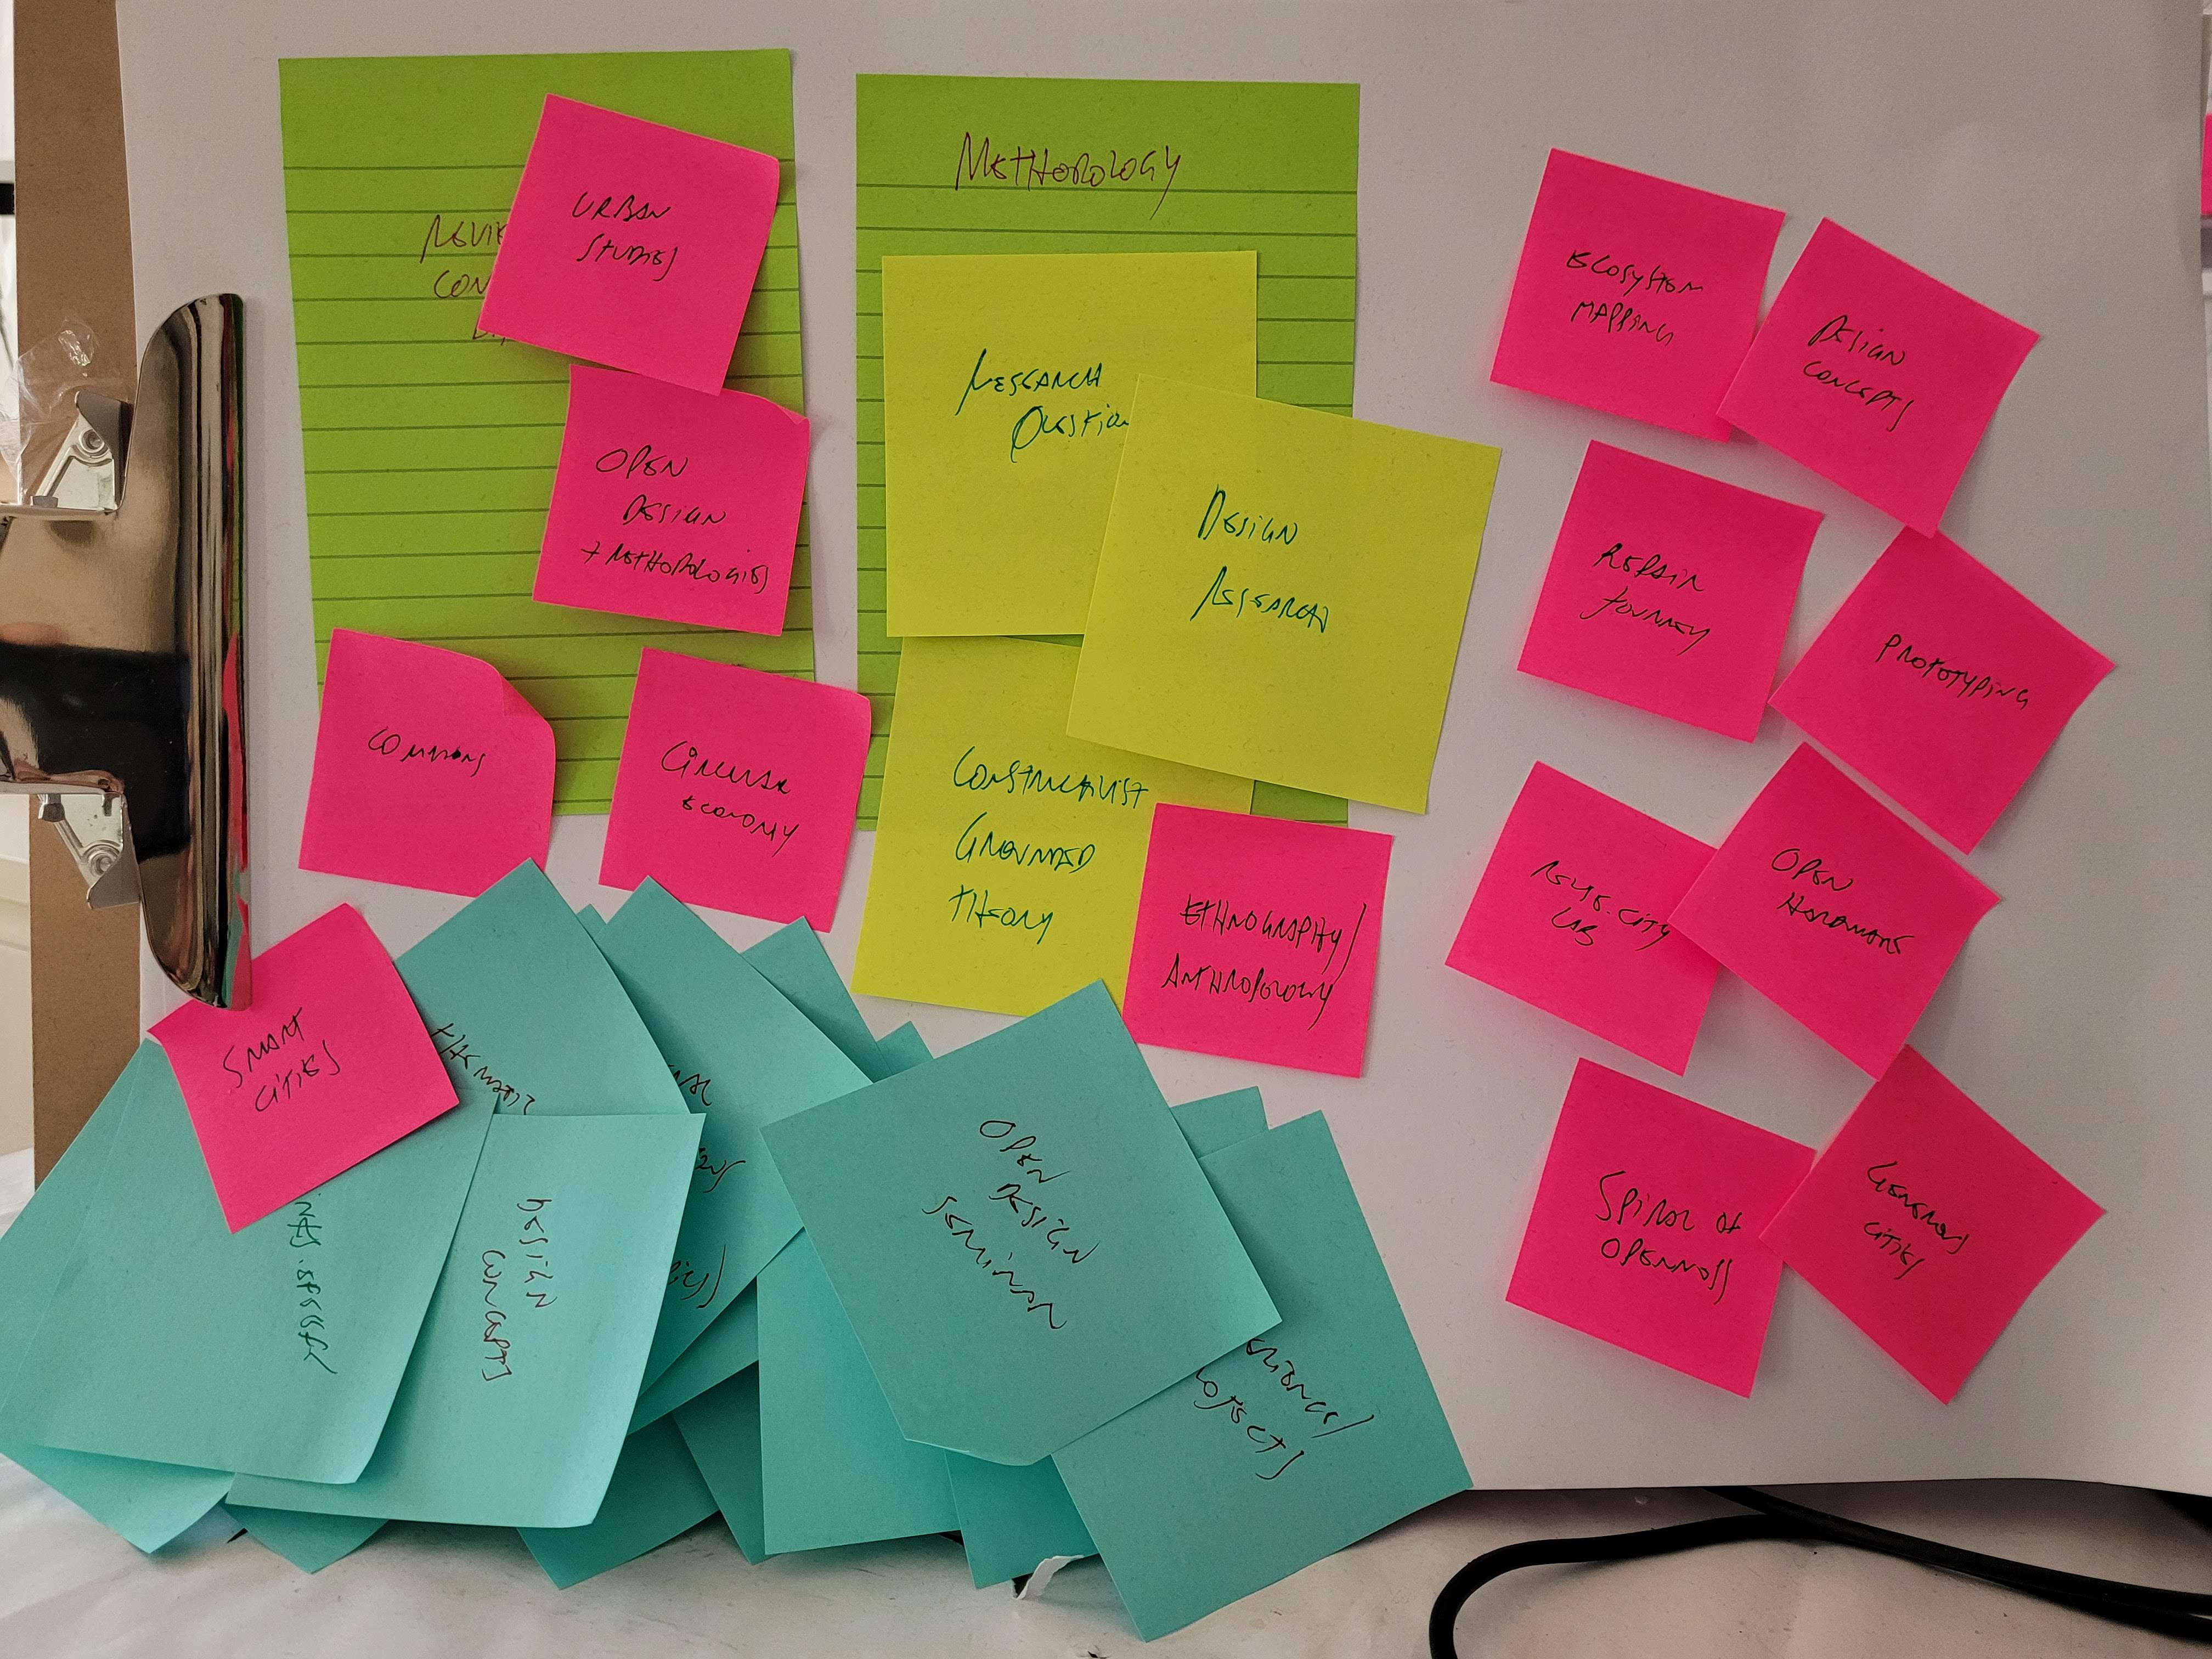 URBAN
STUDIES
OPEN
DESIGN
+ METHODOLOGIES
COMMONS
CIRCULAR
ECONOMY
SMART
CITIES
METHODOLOGY
RESEARCH
QUESTION
DESIGN
RESEARCH
CONSTRUCTIVIST
GROUNDED
THEORY
ETHNOGRAPHY/
ANTHROPOLOGY
ECOSYSTEM
MAPPING
DESIGN
CONCEPTS
REPAIR
JOURNEY
PROTOTYPING
CITY
LAB
OPEN
HARDWARE
SPIRAL OF
OPENNESS
GENEROUS
CITIES
DESIGN
CONCEPTS
OPEN
DESIGN
SEMINAR